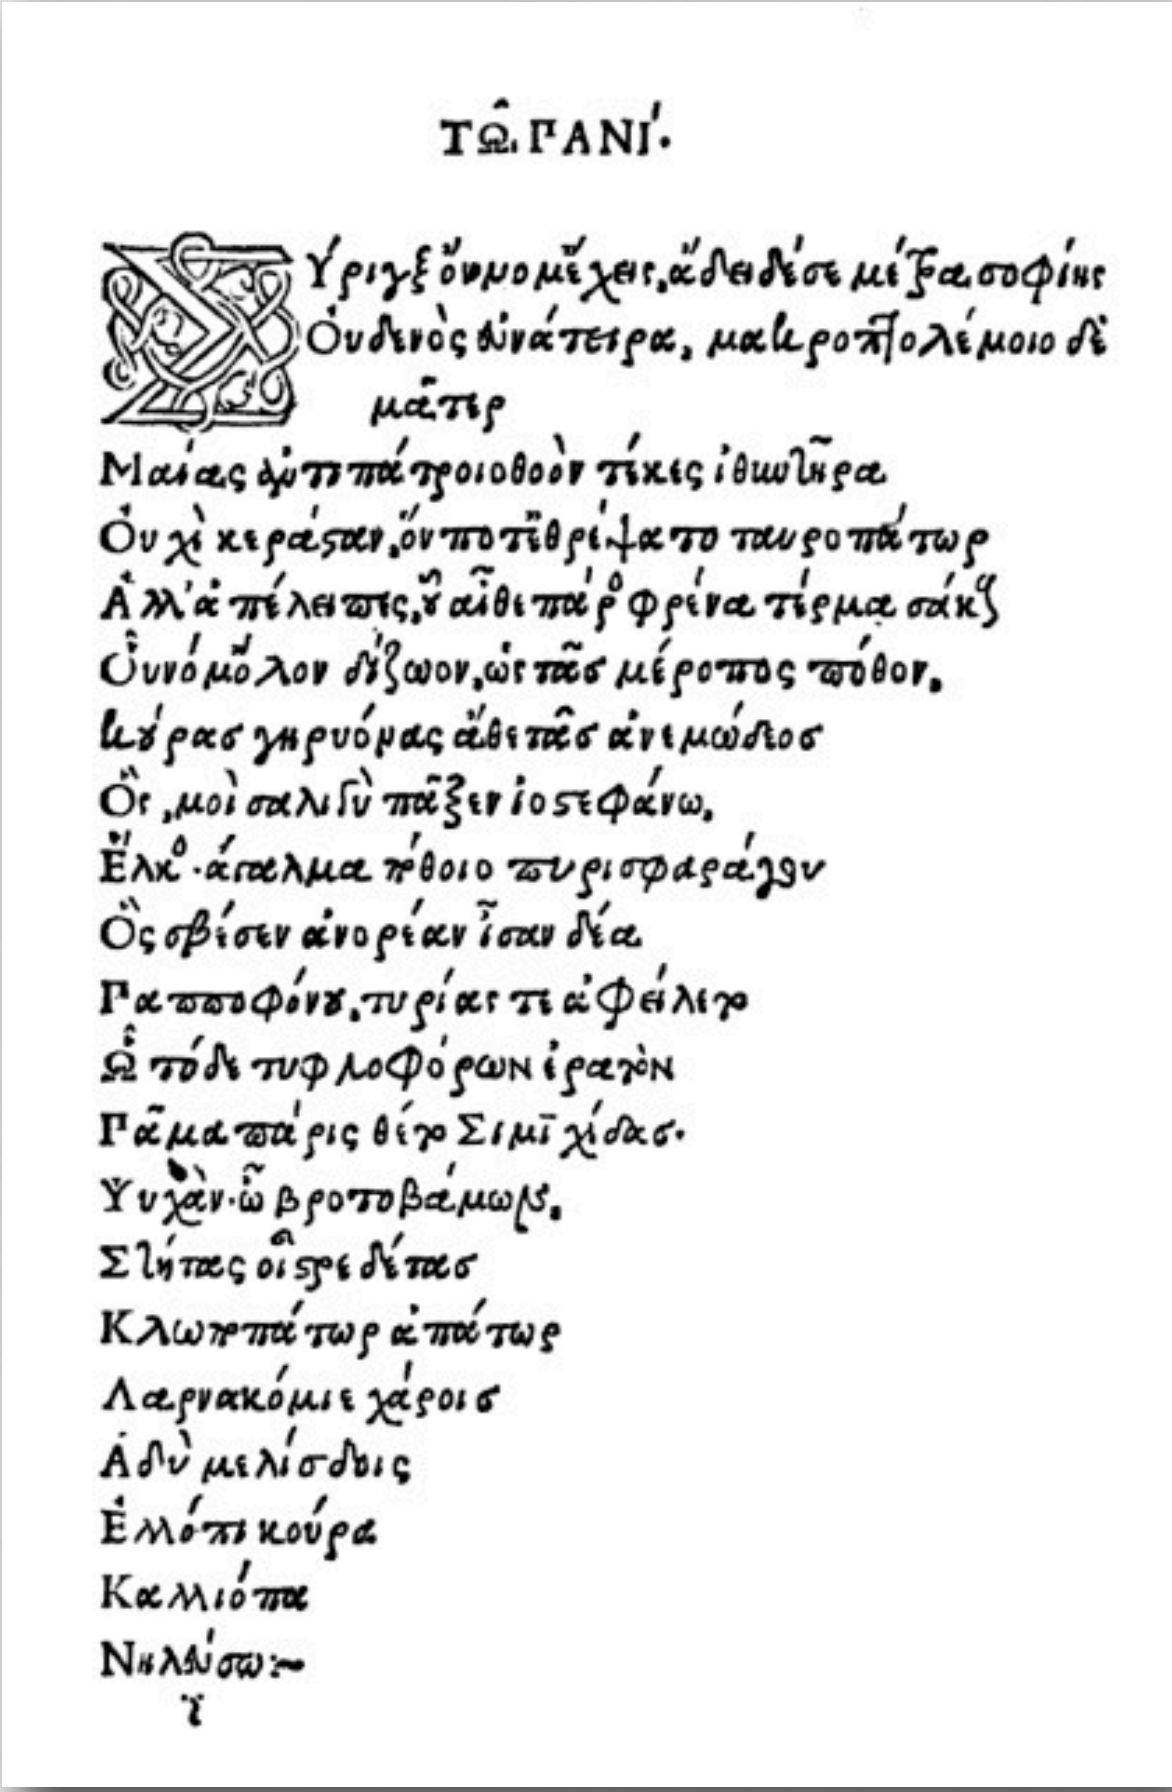 Τῼ͂ ΠΑΝΙ´.
ΣΎριγξ ὄυνομ' ἔχεις, ᾄδει δέ σε μέτρα σοφίης
Ὀυδενὸς ἐυνάτειρα, μακροπτολέμοιο δὲ
μᾶτερ
Μαίας ἀντιπάτροιο θοὸν τέκες ἰθυντῆρα
Ὀυχὶ κεράσταν, ὅν ποτ' ἐθρέψατο ταυροπάτωρ
Ἀλλ' ἁ πέλειπες, οὗ αἶθε πάρος φρένα τέρμα σάκους
Ὀύνομ' ὅλον δίζωον, ὡς πᾶσ μέροπος πόθον,
κούρασ γηρυόνας ἄθε τᾶσ ἀνεμώδεοσ
Ὃς, μοὶ σαλιγὺ πᾶξεν ἰοστεφάνω,
Ἕλκος. ἄγαλμα πόθοιο πυρισφαράγου
Ὃς σβέσεν ἀνορέαν ἶσαν δέα
Παπποφόνου, τυρίας τε ἀφείλετο
Ὧ τόδε τυφλοφόρων ἐρατὸν
Πᾶμα πάρις θέτο Σιμιχίδασ.
Ψυχὰν. ὦ βροτοβάμων,
Στήτας οἶστρε δέτασ
Κλωποπάτωρ ἀπάτωρ
Λαρνακόμιε χάροισ
Ἁδὺ μελίσδοις
Ἐλλόπι κούρα
Καλλιόπα
Νηλεύσω:~
ϊ